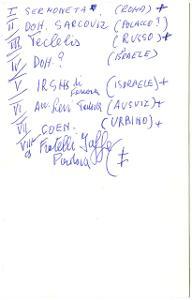 I SERMONETA. (ROMA) +
II DOH. SARCOVIZ (POLACCO?)
III Teclelis (RUSSO) +
IV DOH. ? (ISRAELE)
V IRSHS di Ferrara (ISDRAELE) +
VI Levi (AUSVIZ) +
VII COEN. (URBINO) +
VIII Fratelli Jaffe
Padova